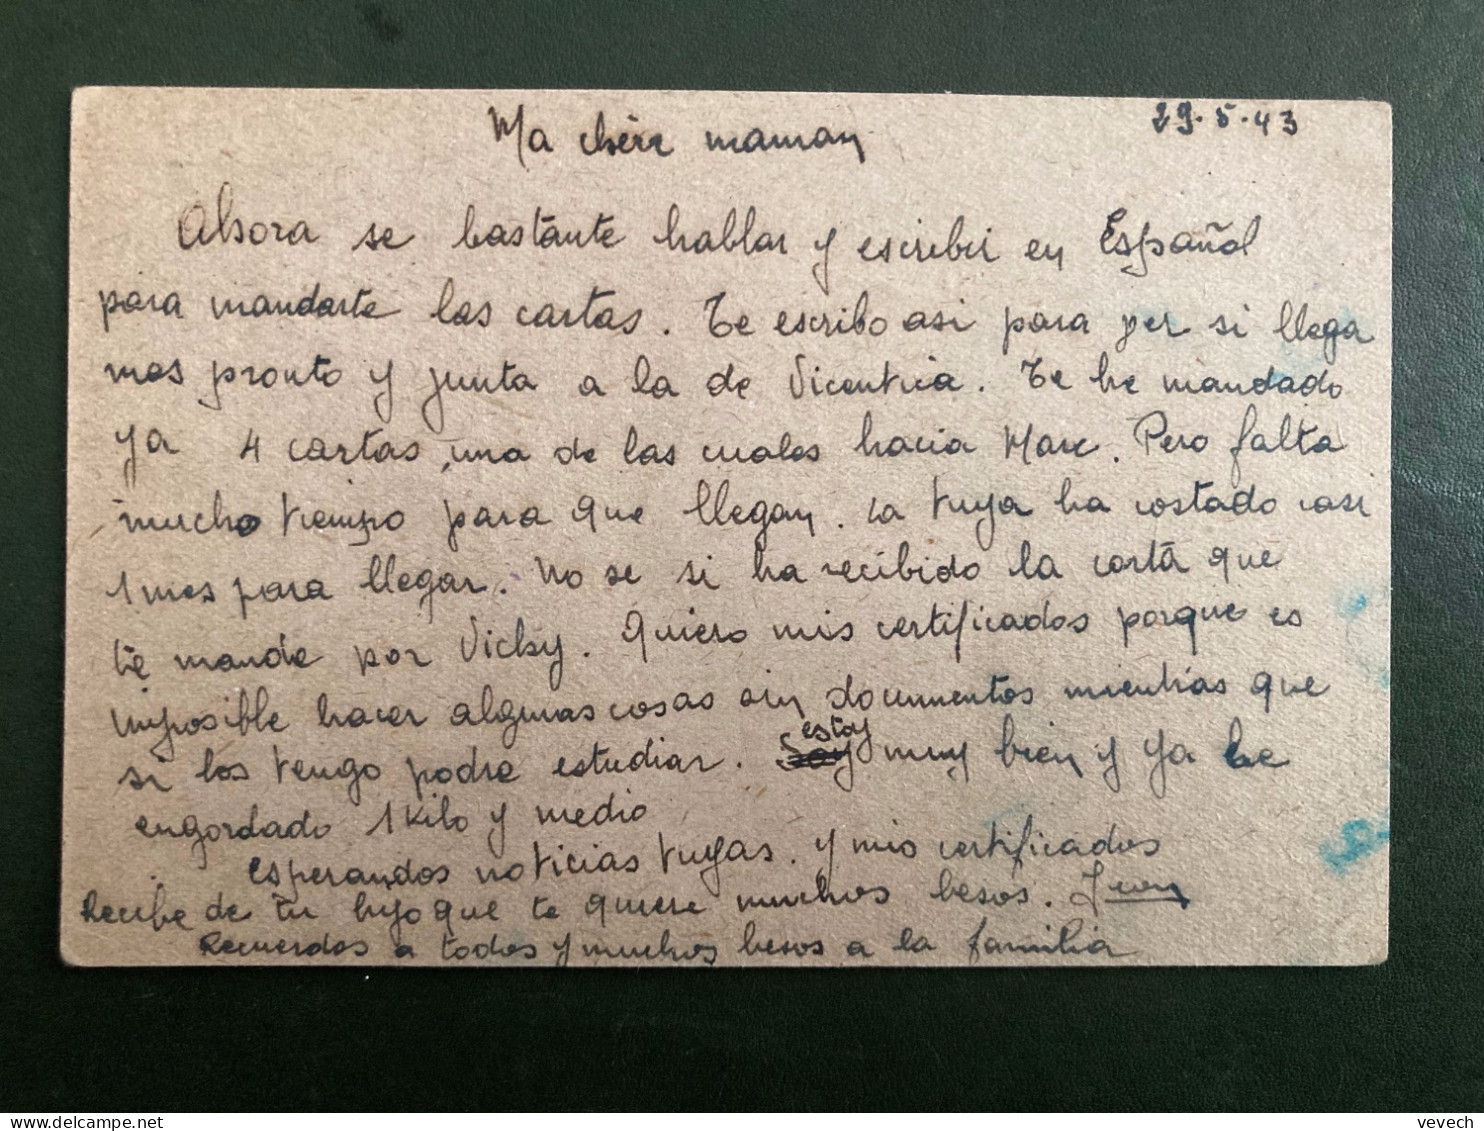 29.5.43
Ma chère maman
Ahora se bastante hablar y escribir en Español
para mandarte las cartas. Te escribo asi para ver si llega
mas pronto y junta a la de Vicentica. Te he mandado
ya 4 cartas, una de las cuales hacia Marc. Pero falta
mucho tiempo para que llegan. La tuya ha costado casi
1 mes para llegar. No se si ha recibido la carta que
te mande por Vichy. Quiero mis certificados porque es
imposible hacer algunas cosas sin documentos mientras que
si los tengo podre estudiar. Soy estoy muy bien y ya he
engordado 1 kilo y medio
Esperandos noticias tuyas. y mis certificados
Recibe de tu hijo que te quiere muchos besos. Jean
Recuerdos a todos y muchos besos a la familia
vevech